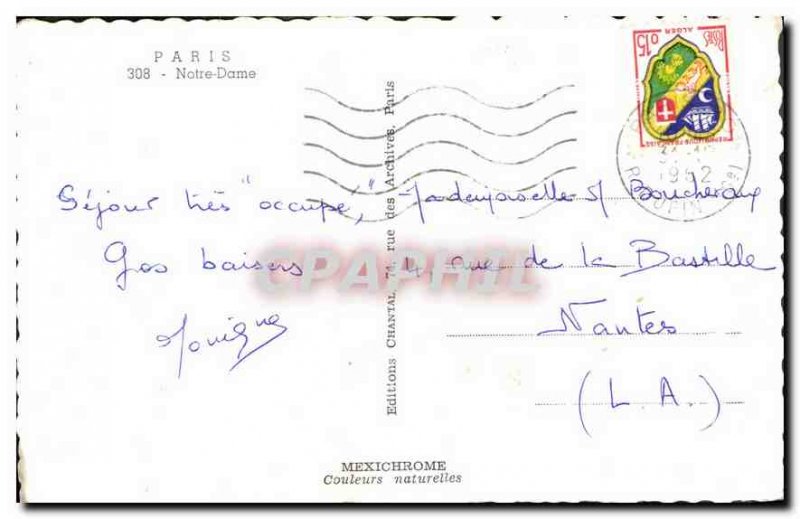 PARIS
308 - Notre-Dame
Postes 0,15
ALGER
REPUBLIQUE FRANCAISE
1962
Séjour très "occupé,"
Gos baisers
Monique
Mademoiselle
4, rue de la Bastille
Nantes
(L.A.)
Editions CHANTAL, 74, rue des Archives, Paris
CPAPHIL
MEXICHROME
Couleurs naturelles